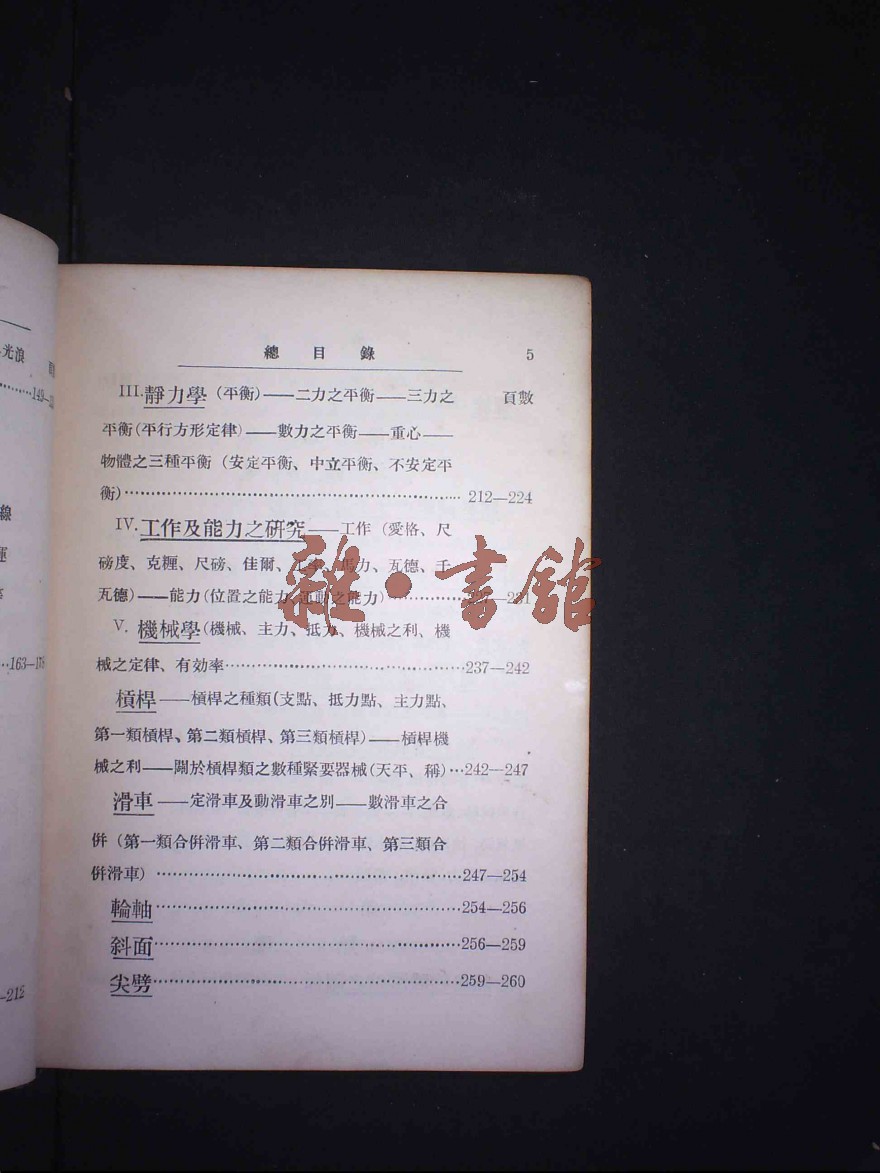 光浪
149
線
運
163—17
212
總目錄 5
III.靜力學(平衡)——二力之平衡——三力之 頁數
平衡(平行方形定律)——數力之平衡——重心——
物體之三種平衡(安定平衡、中立平衡、不安定平
衡)…… 212—224
IV.工作及能力之研究——工作(愛格、尺
磅度、克糎、尺磅、佳爾、馬力、瓦德、千
瓦德)——能力(位置之能力、運動之能力)……231
V. 機械學(機械、主力、抵力、機械之利、機
械之定律、有効率……237—242
槓桿——槓桿之種類(支點、抵力點、主力點、
第一類槓桿、第二類槓桿、第三類槓桿)——槓桿機
械之利——關於槓桿類之數種緊要器械(天平、稱)…242—247
滑車——定滑車及動滑車之別——數滑車之合
併(第一類合併滑車、第二類合併滑車、第三類合
併滑車)……247—254
輪軸……254—256
斜面……256—259
尖劈……259—260
雜·書館